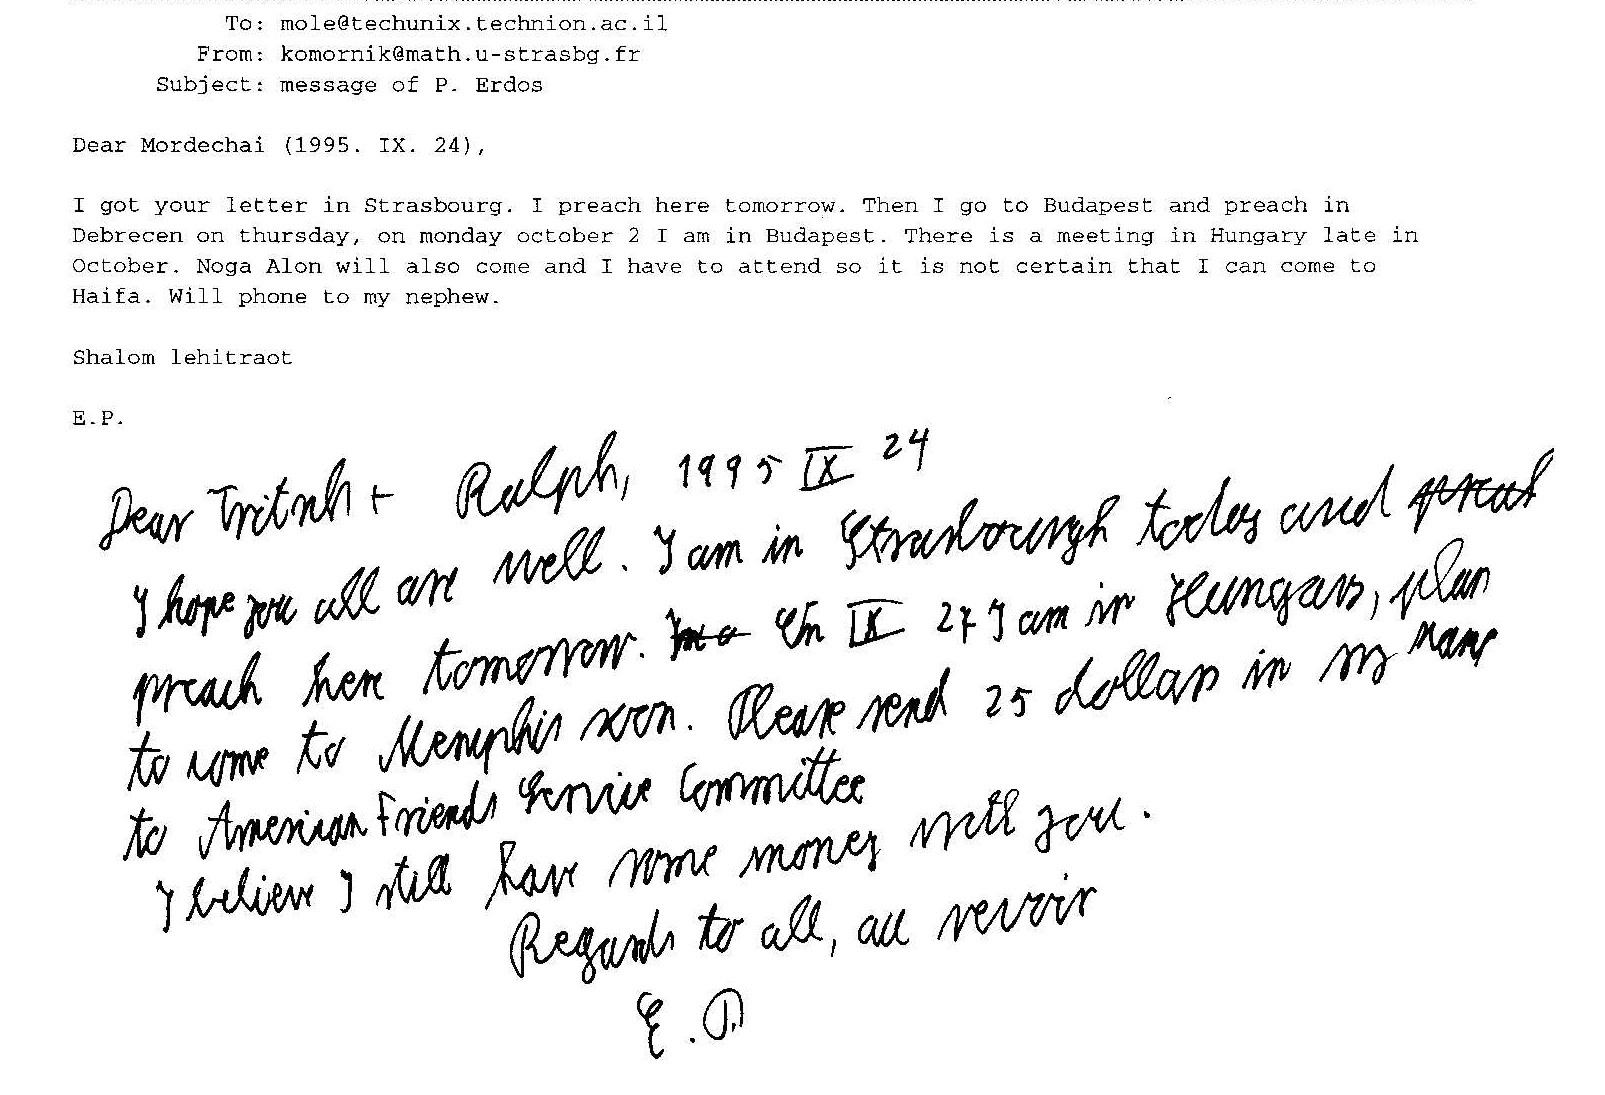 To: mole@techunix.technion.ac.il
From: komornik@math.u-strasbg.fr
Subject: message of P. Erdos
Dear Mordechai (1995. IX. 24),
I got your letter in Strasbourg. I preach here tomorrow. Then I go to Budapest and preach in
Debrecen on thursday, on monday october 2 I am in Budapest. There is a meeting in Hungary late in
October. Noga Alon will also come and I have to attend so it is not certain that I can come to
Haifa. Will phone to my nephew.
Shalom lehitraot
E.P.
Dear + Ralph, 1995 IX 24
I hope you all are well. I am in today and
preach here tomorrow. On IX 27 I am in Hungary, plan
to come to Memphis soon. Please send 25 dollars in my name
to American Friends Service Committee
I believe I still have some money with you.
Regards to all, au revoir
E.P